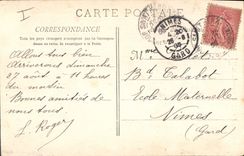 CARTE POSTALE
CORRESPONDANCE
Allons tous bien
Arriverons dimanche
27 août à 11 heures
du matin
Bonnes amitiés de
nous tous
L. Roger
NIMES
GARD
Bd Talabot
Ecole Maternelle
Nimes
(Gard)